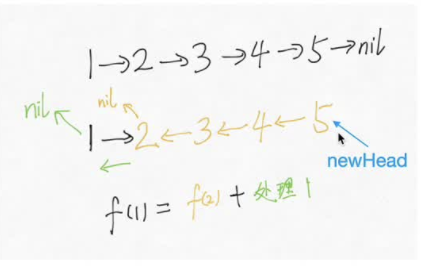 1→2→3→4→5→nil
nil nil
1→2←3←4←5
←
newHead
f(1) = f(2) + 处理1